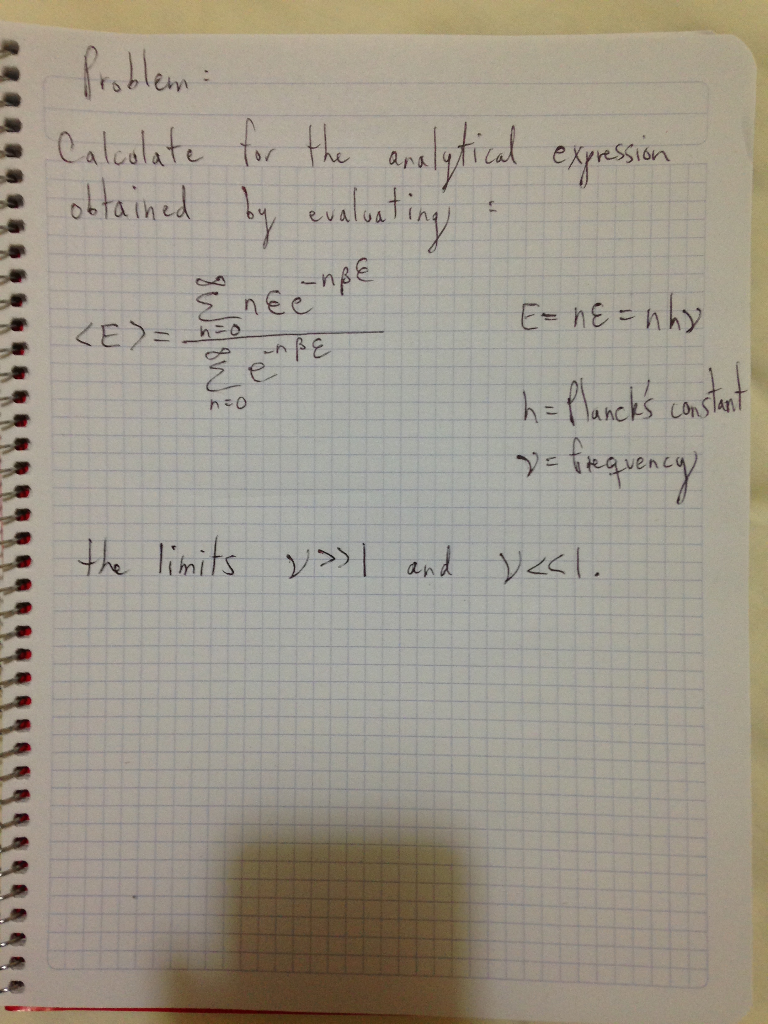 Problem:
Calculate for the analytical expression
obtained by evaluating:
<E> = \frac{\sum_{n=0}^{\infty} nεe^{-nβε}}{\sum_{n=0}^{\infty} e^{-nβε}}
E = nε = nhν
h = Planck's constant
ν = frequency
the limits ν>>1 and ν<<1.